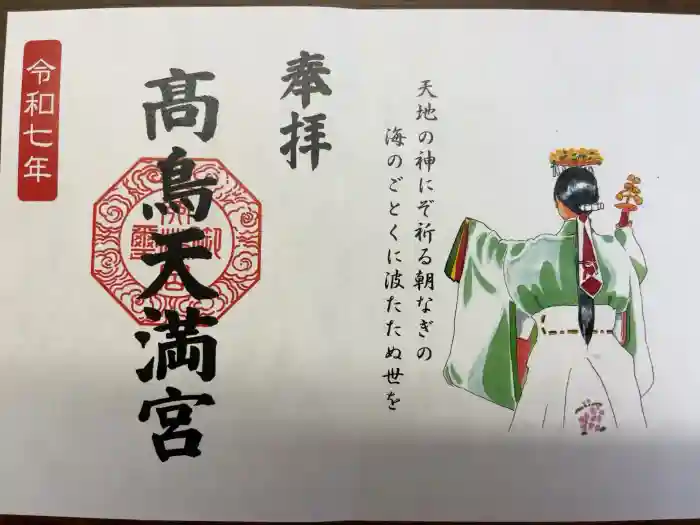 天地の神にぞ祈る朝なぎの
海のごとくに波たたぬ世を
奉拝
高鳥天満宮
令和七年